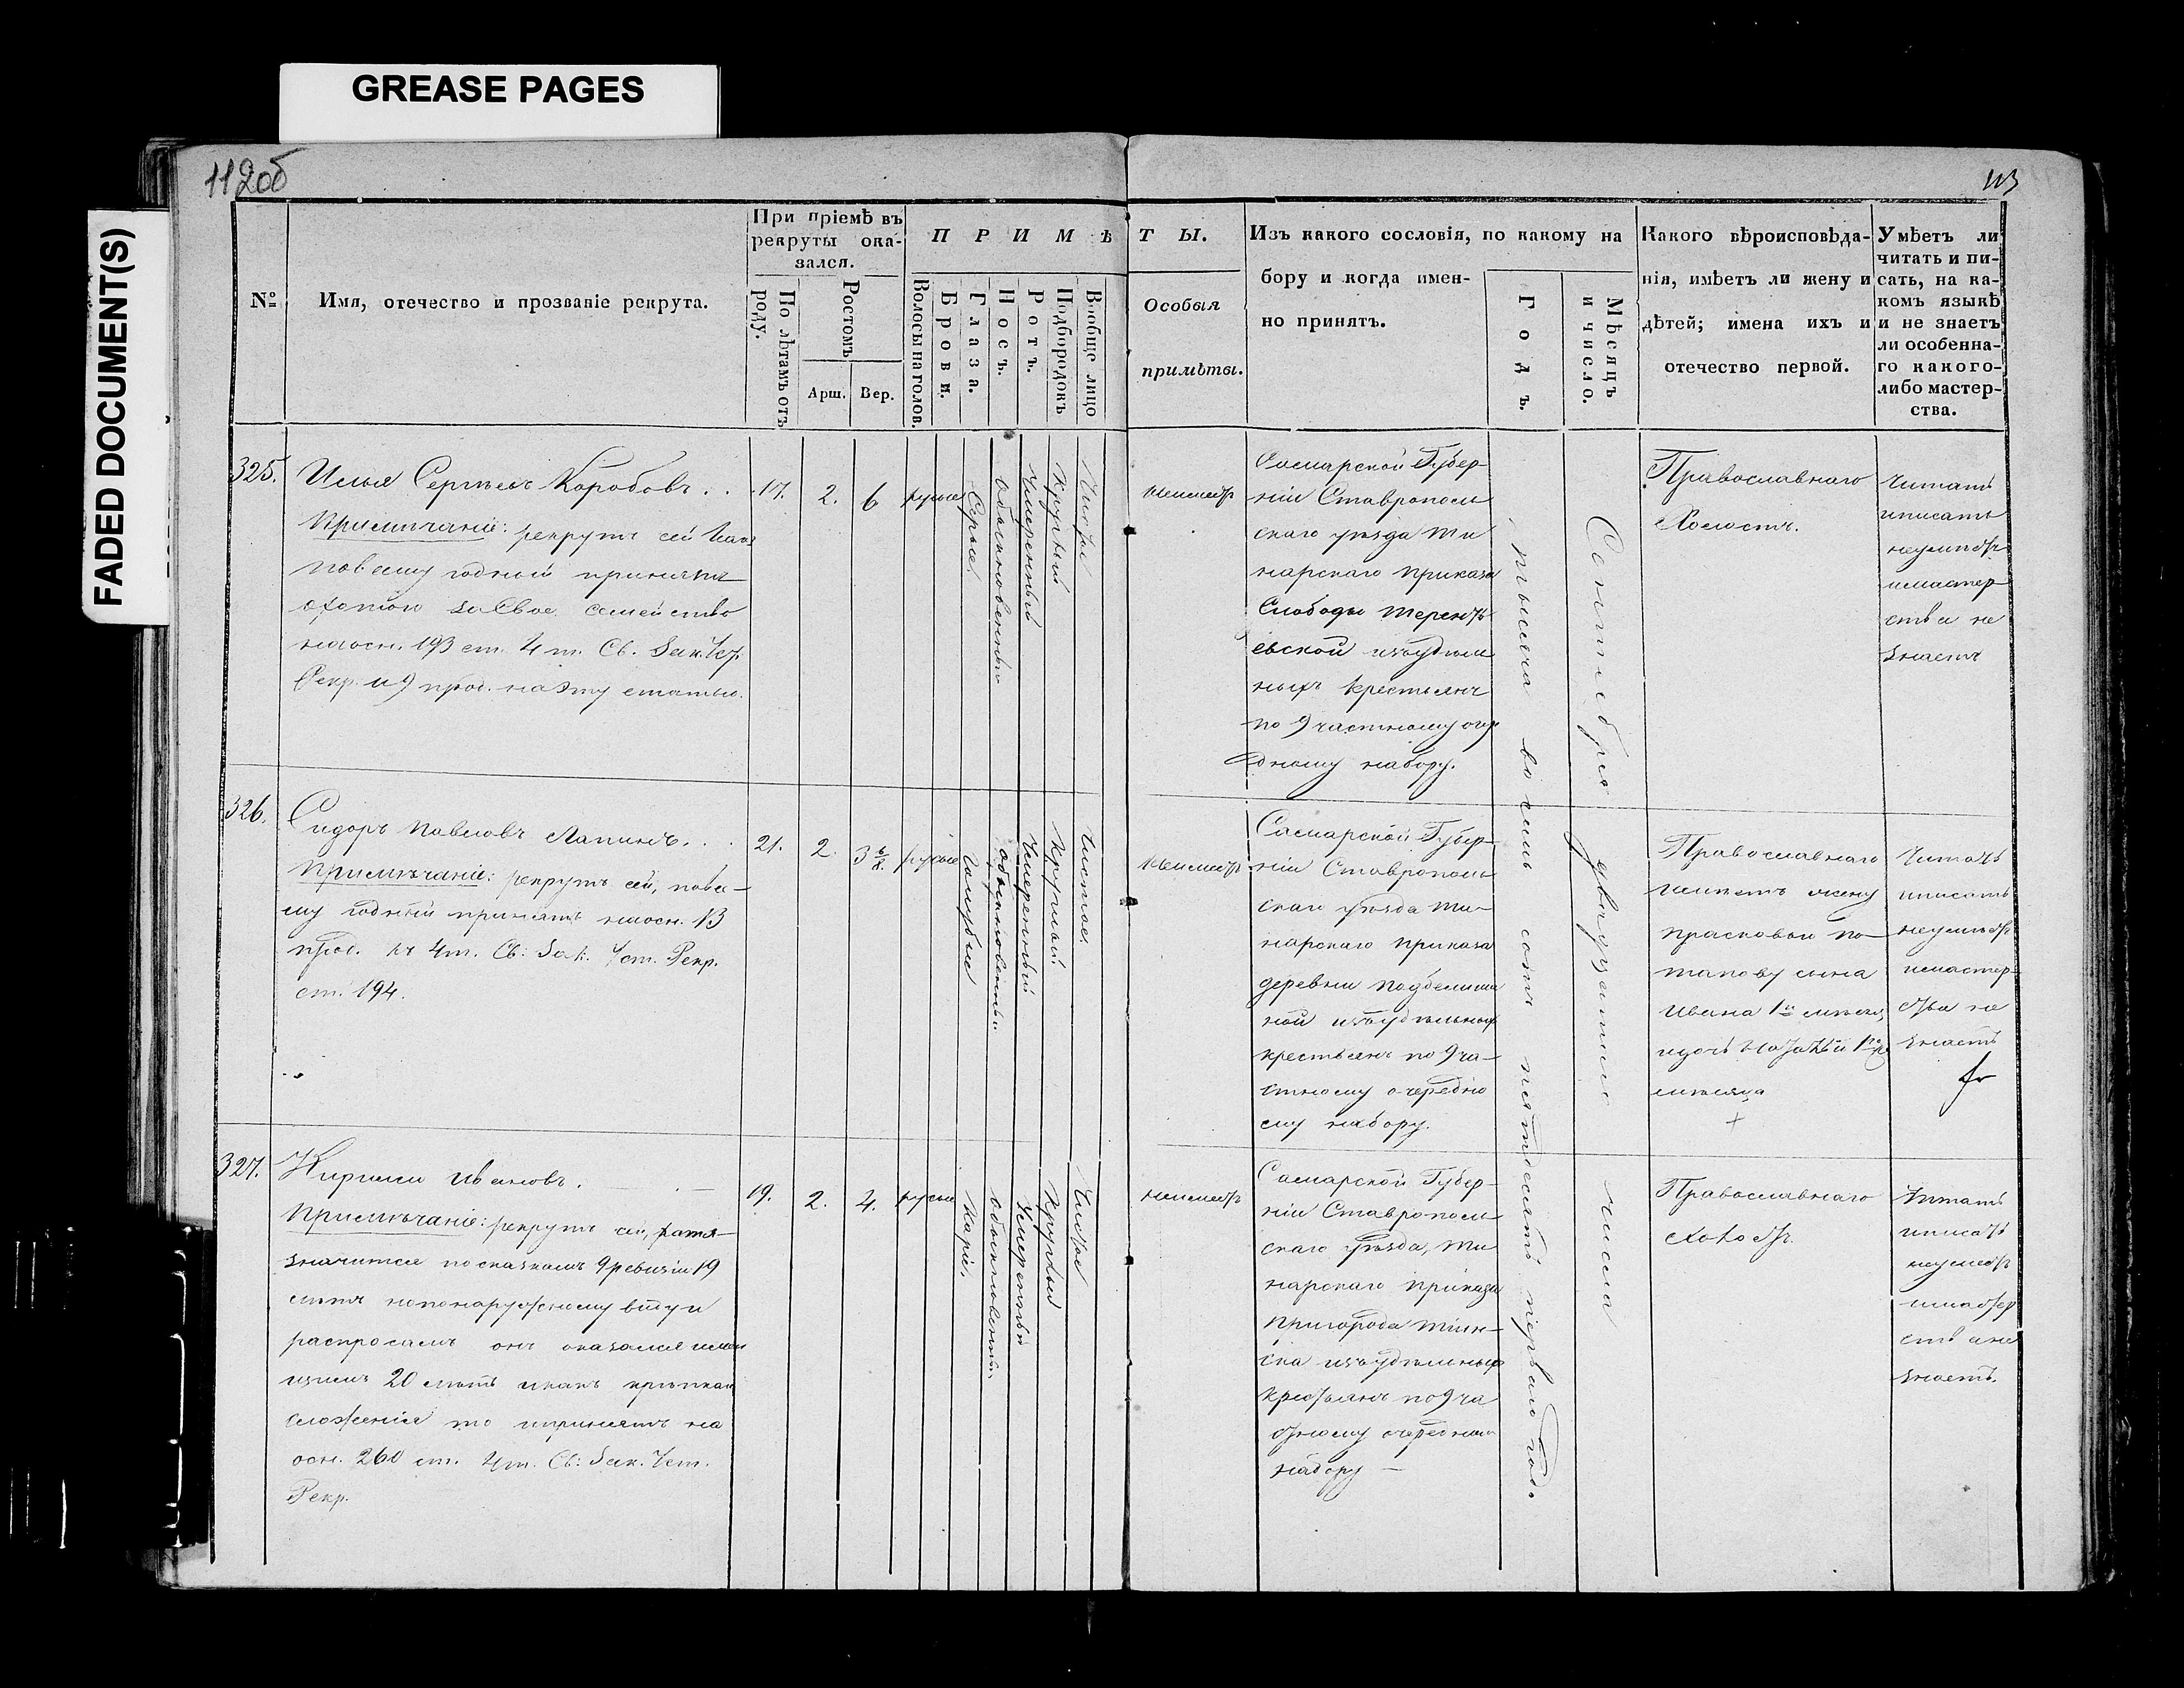 GREASE PAGES
FADED DOCUMENT(S)
112об
113
№
Имя, отечество и прозваніе рекрута.
При пріемѣ въ
рекруты ока-
зался.
По лѣтамъ отъ
роду.
Ростомъ
Арш.
Вер.
ПРИМѢТЫ.
Волосы на голов.
Брови.
Глаза.
Носъ.
Ротъ.
Подбородокъ
Вообще лицо
Особыя
примѣты.
Изъ какого сословія, по какому на
бору и когда имен-
но принятъ.
Годъ.
Мѣсяцъ
и число.
Какого вѣроисповѣда-
нія, имѣетъ ли жену и
дѣтей; имена ихъ и
отечество первой.
Умѣетъ ли
читать и пи-
сать, на ка-
комъ языкѣ
и не знаетъ
ли особенна-
го какого-
либо мастер-
ства.
325.
Илья Сергѣевъ Коробовъ . .
Примѣчаніе: рекрутъ сей
повсему годный принятъ
охотою за свое семейство
наосн. 193 ст. 4 т. Св. Зак. Уст.
Рекр. и 9 прод. на эту статью.
17.
2.
6
русые
Серые
обыкновенный
Умеренный
Круглый
Чистое
неимеетъ
Самарской Губер-
ніи Ставрополь
скаго уѣзда Ти
нарскаго приказа
Слободы Терентъ
евской изъудѣль
ныхъ крестьянъ
по 9 частному оче
дному набору.
тысяча восемь сотъ пятьдесятъ перваго года.
Сентября двадцатаго числа
Православнаго
Холостъ.
Читать
иписать
неумѣетъ
имастер
ства не
знаетъ
326.
Сидоръ Павловъ Лапинъ. . .
Примѣчаніе: рекрутъ сей, повсе-
му годный принятъ наосн. 13
прод. къ 4т. Св: Зак. Уст. Рекр.
ст. 194.
21.
2.
3 6/8
русые
Голубые
обыкновенный
Умеренный
Круглый
Чистое
неимеетъ
Самарской Губер-
ніи Ставрополь
скаго уѣзда Ти-
нарскаго приказа
деревни
ной изъудѣльныхъ
крестьянъ по 9 ча-
стному очередно
му набору.
Православнаго
имѣетъ жену
Прасковью По-
тапову сына
Ивана
мѣсяца
Читать
иписать
неумѣетъ
имастер-
ства не
знаетъ
327.
Кирилъ Ивановъ.
Примѣчаніе: рекрутъ сей, хотя-
значится посказкамъ 9 ревизіи 19
лѣтъ нопонаружному виду и
распросамъ онъ оказался
20 лѣтъ икакъ крѣпкаго
сложенія то ипринятъ на
осн. 260 ст. 4т. Св: Зак. Уст.
Рекр.
19.
2.
4.
русые
Каріе.
Обыкновенный
Умеренный
Круглый
Чистое
неимеетъ
Самарской Губер-
ніи Ставрополь
скаго уѣзда, Ти
нарскаго приказа
Пригорода Тіин-
ска изъудѣльныхъ
крестьянъ по 9 ча
стному очередному
набору —
Православнаго
холостъ.
Читать
иписать
неумеетъ
имастер
ства не
знаетъ.